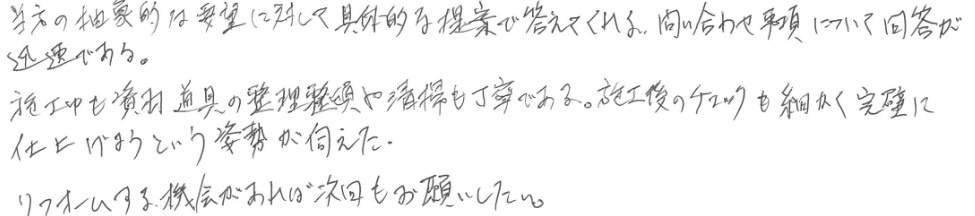 当方の抽象的な要望に対して具体的な提案で答えてくれる。問い合わせ事項について回答が
迅速である。
施工中も資材道具の整理整頓や清掃も丁寧である。施工後のチェックも細かく完璧に
仕上げようという姿勢が伺えた。
リフォームする機会があれば次回もお願いしたい。